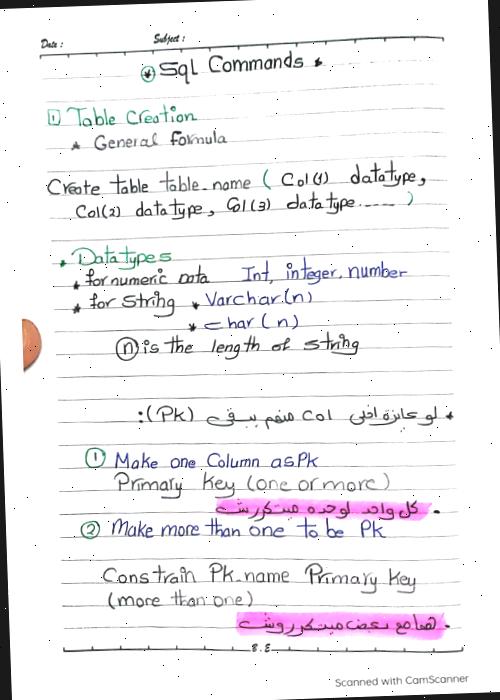 Date :
Subject :
* Sql Commands *
1 Table Creation
* General Formula
Create table table-name ( Col(1) datatype,
Col(2) datatype, Col(3) datatype ..... )
* Datatypes
* for numeric Data Int, integer, number
* for String * Varchar(n)
* char(n)
(n) is the length of string
* لو عايزة اخلي Col منهم يبقى (Pk):
① Make one Column as Pk
Primary Key (one or more)
كل واحد لوحده مبتكررش .
② Make more than one to be Pk
Constrain Pk-name Primary Key
(more than one)
هما مع بعض ميتكرروش .
Scanned with CamScanner